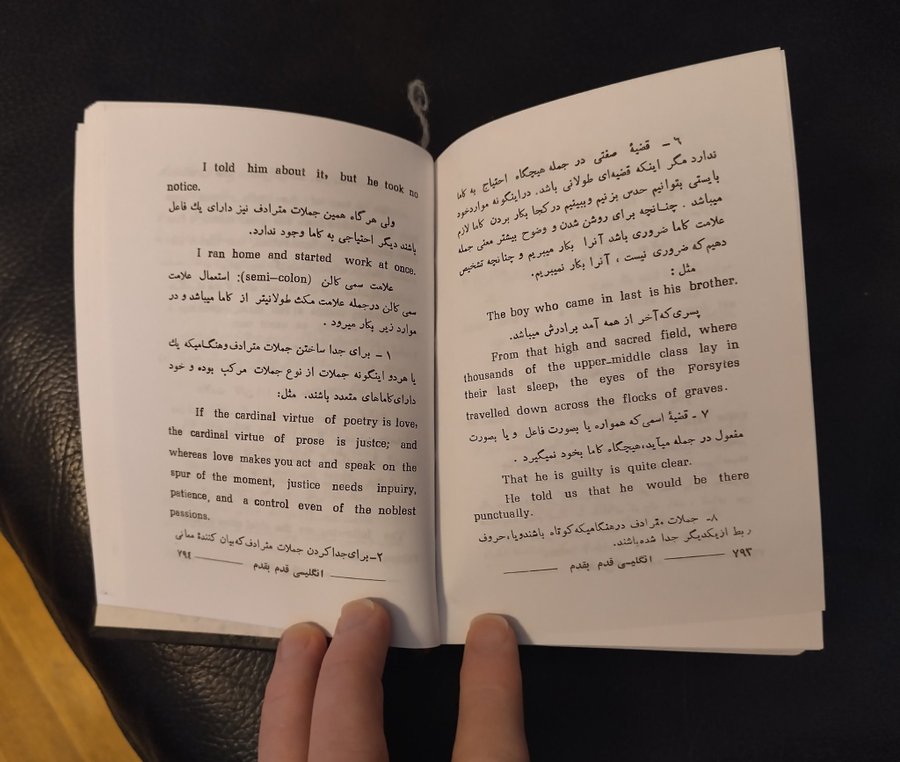 ۶ - قضیهٔ صفتی در جمله هیچگاه احتیاج به کاما
ندارد مگر اینکه قضیه‌ای طولانی باشد. دراینگونه مواردخود
بایستی بتوانیم حدس بزنیم وببینیم درکجا بکار بردن کاما لازم
میباشد . چنـانچه برای روشن شدن و وضوح بیشتر معنی جمله
علامت کاما ضروری باشد آنرا بکار میبریم و چنانچه تشخیص
دهیم که ضروری نیست ، آنرا بکار نمیبریم.
مثل :
The boy who came in last is his brother.
پسری‌که‌آخر از همه آمد برادرش میباشد.
From that high and sacred field, where
thousands of the upper-middle class lay in
their last sleep, the eyes of the Forsytes
travelled down across the flocks of graves.
۷ - قضیهٔ اسمی‌که همواره یا بصورت فاعل و یا بصورت
مفعول در جمله میآید،هیچگاه کاما بخود نمیگیرد .
That he is guilty is quite clear.
He told us that he would be there
punctually.
۸- جملات مترادف درهنگامیکه‌کوتاه باشندویا،حروف
ربط ازیکدیگر جدا شده‌باشند.
۷۹۳ انگلیسی قدم بقدم
I told him about it, but he took no
notice.
ولی هرگاه همین جملات مترادف نیز دارای یك فاعل
باشند دیگر احتیاجی به کاما وجود ندارد.
I ran home and started work at once.
علامت سمی کالن (semi-colon): استعمال علامت
سمی کالن درجمله علامت مکث طولانیتر از کاما میباشد و در
موارد زیر بکار میرود .
۱ - برای جدا ساختن جملات مترادف‌وهنگامیکه یك
یا هردو اینگونه جملات از نوع جملات مرکب بوده و خود
دارای‌کاماهای متعدد باشند. مثل:
If the cardinal virtue of poetry is love,
the cardinal virtue of prose is justce; and
whereas love makes you act and speak on the
spur of the moment, justice needs inpuiry,
patience, and a control even of the noblest
passions.
۲-برای‌جداکردن جملات مترادف‌که‌بیان کنندهٔ معانی
انگلیسی قدم بقدم ۷۹۴